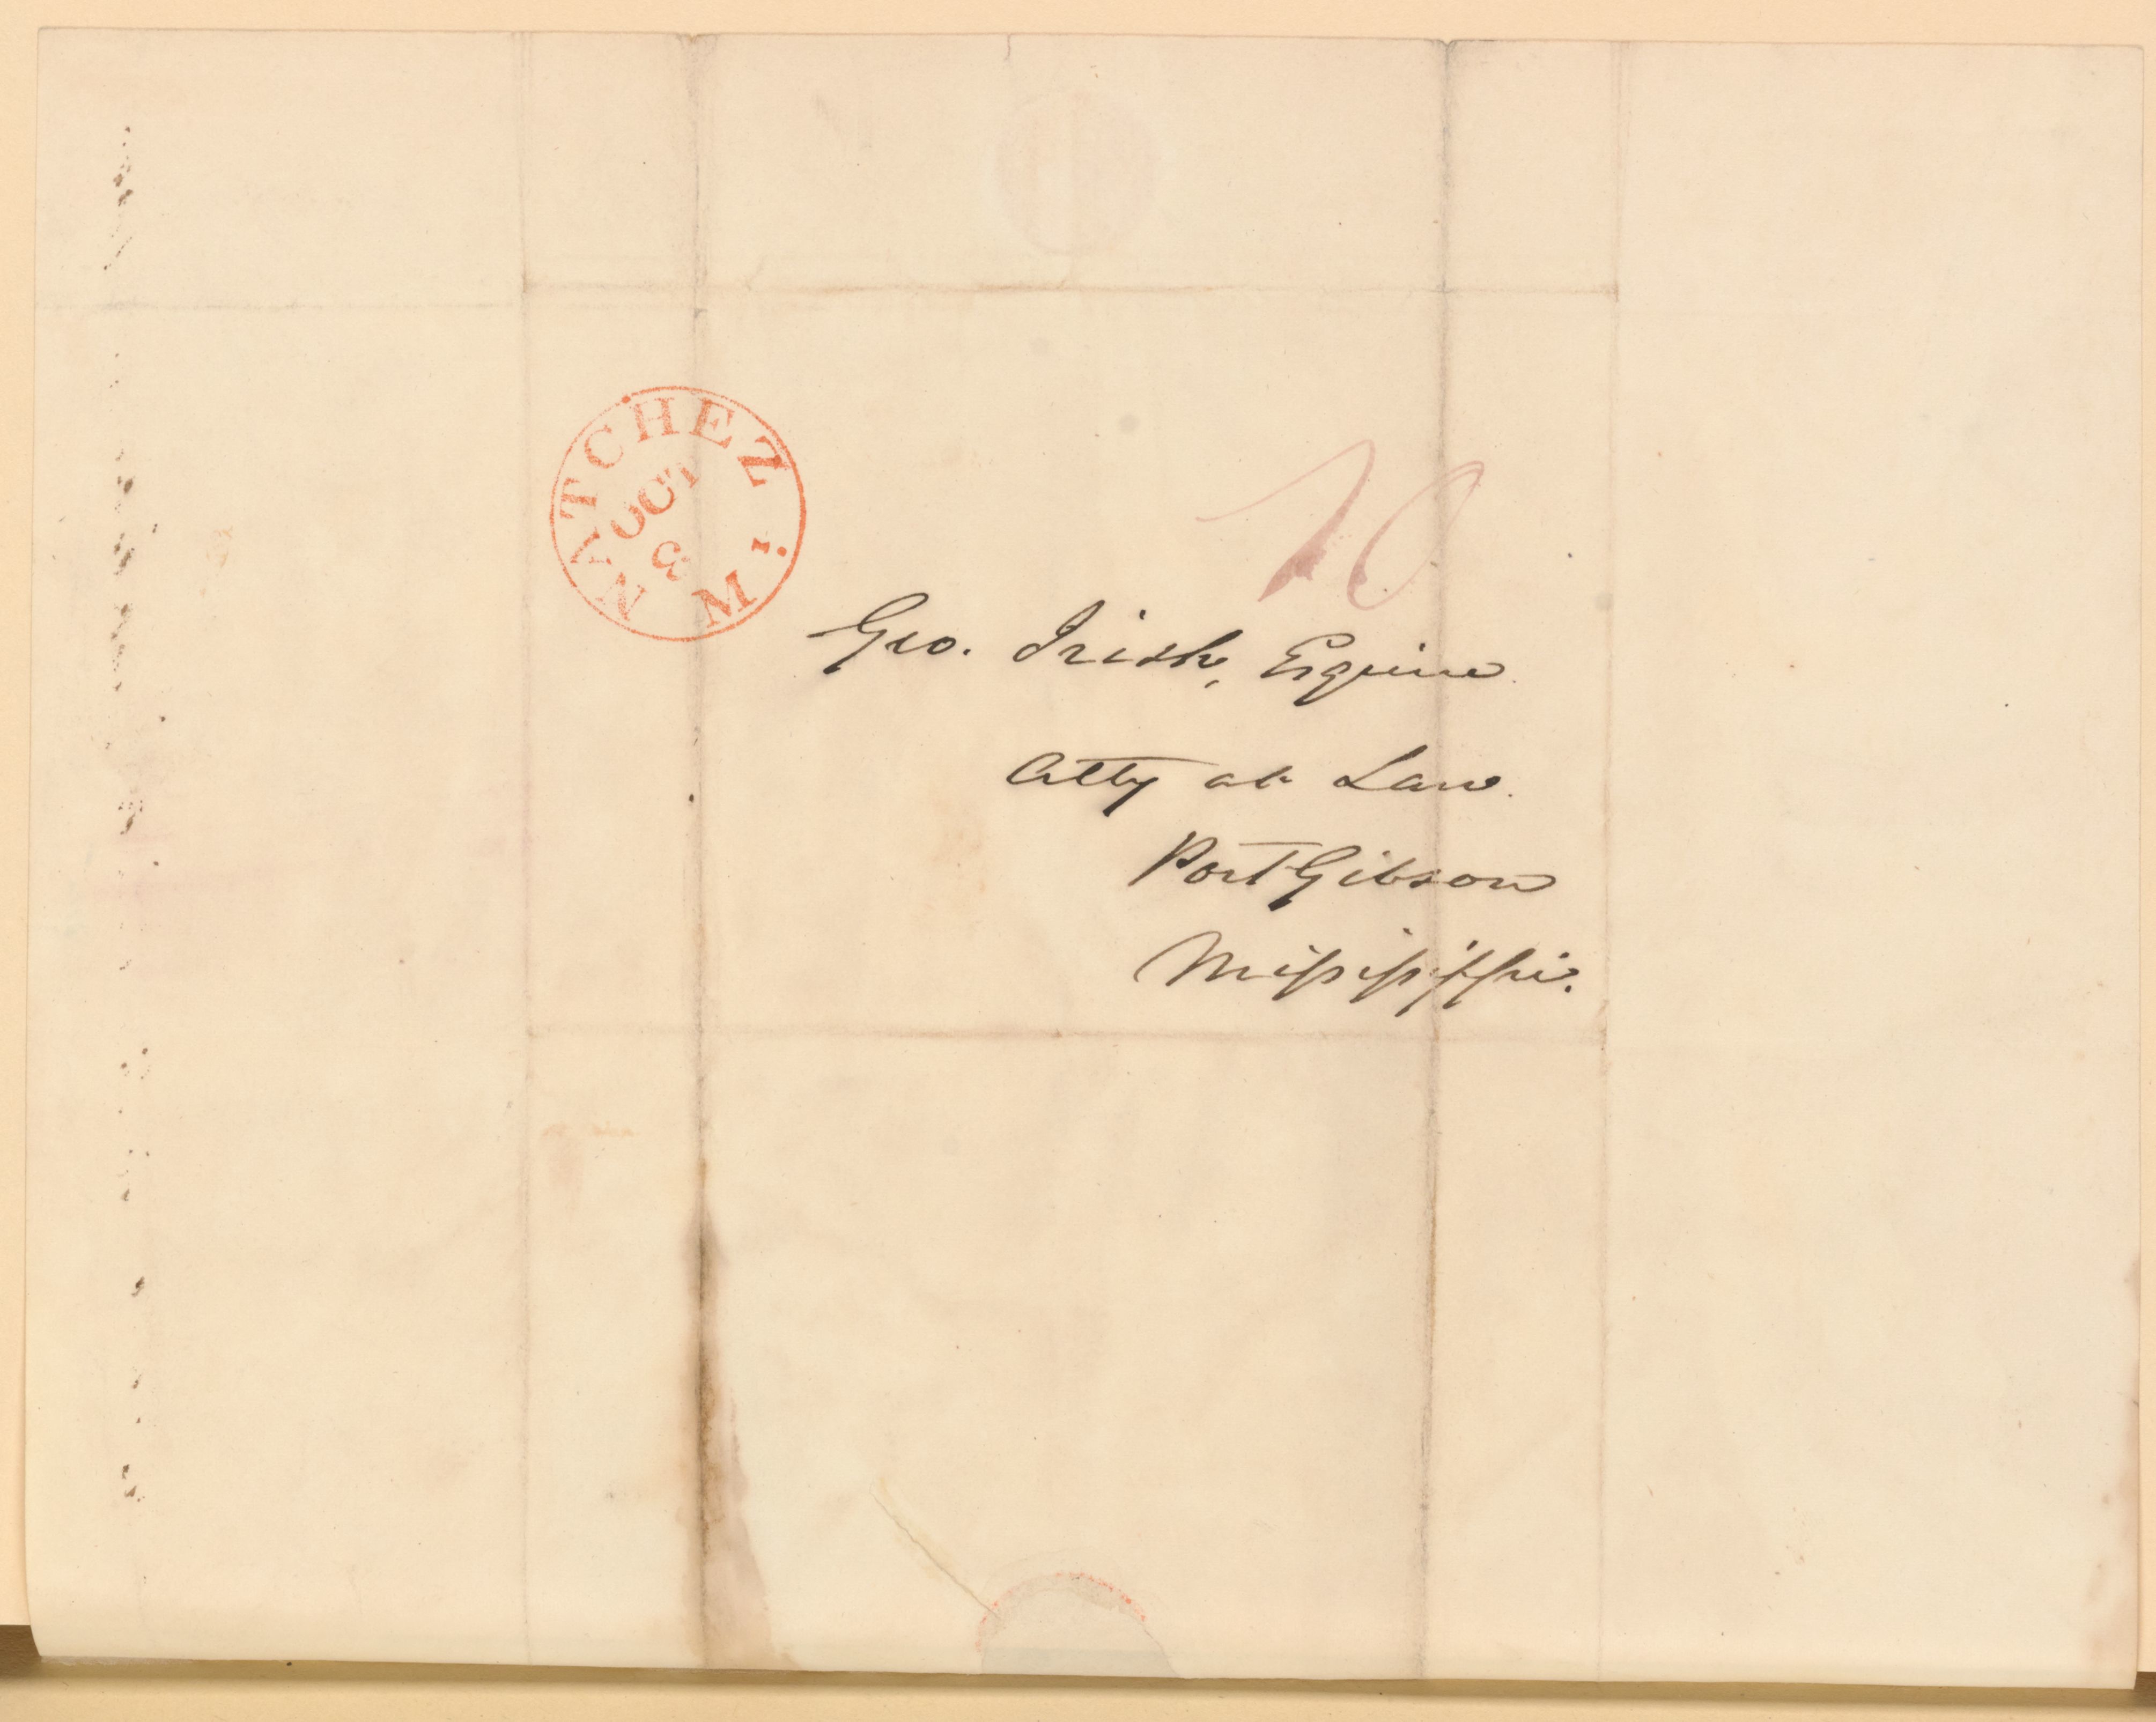 NATCHEZ Mi.
OCT
3
10
Geo. Irish, Esquire
Atty at Law.
Port Gibson
Mississippi.